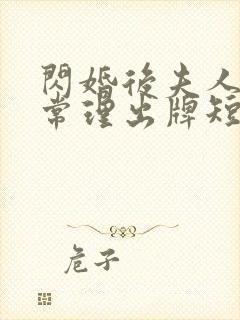 閃婚後夫人
常理出牌短
危子